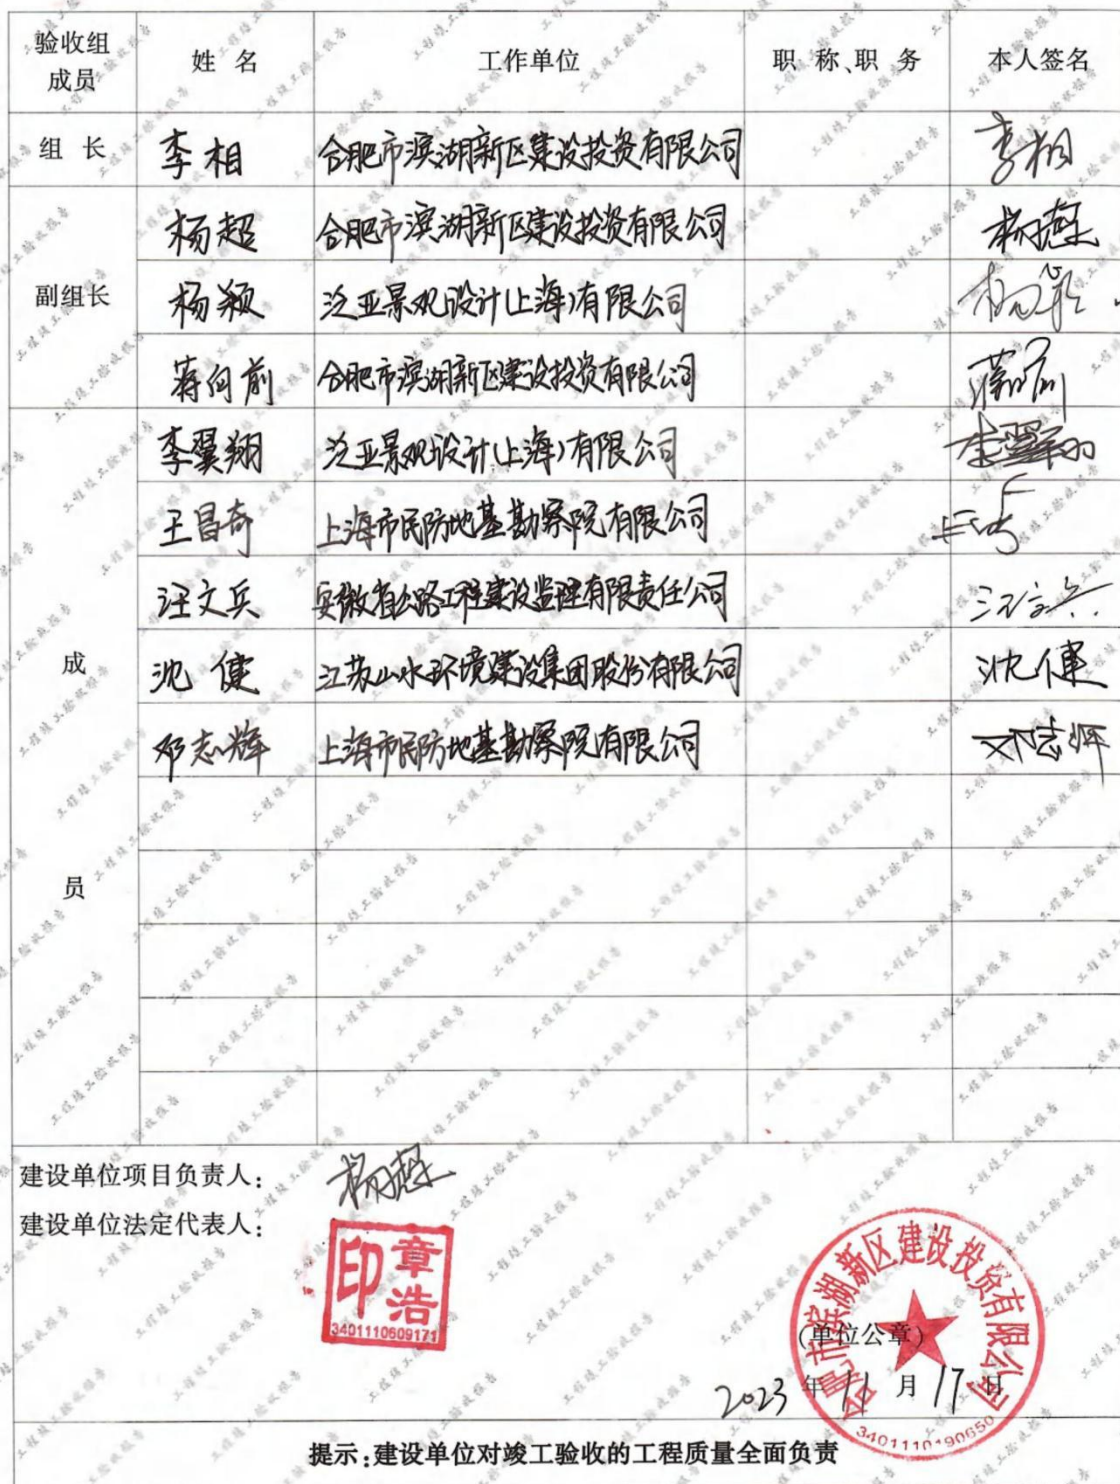 验收组成员 姓 名 工作单位 职 称、职 务 本人签名
组 长 李相 合肥市滨湖新区建设投资有限公司 李相
副组长 杨超 合肥市滨湖新区建设投资有限公司 杨超
杨颖 泛亚景观设计(上海)有限公司 杨颖
蒋向前 合肥市滨湖新区建设投资有限公司 蒋向前
成员 李翼翔 泛亚景观设计(上海)有限公司 李翼翔
王昌奇 上海市民防地基勘察院有限公司
汪文兵 安徽省公路工程建设监理有限责任公司 汪文兵
沈健 江苏山水环境建设集团股份有限公司 沈健
邓志辉 上海市民防地基勘察院有限公司 邓志辉
建设单位项目负责人: 杨超
建设单位法定代表人:
章浩印
3401110609171
合肥市滨湖新区建设投资有限公司
(单位公章)
2023 年 11 月 17 日
3401110190650
提示:建设单位对竣工验收的工程质量全面负责
工程竣工验收报告